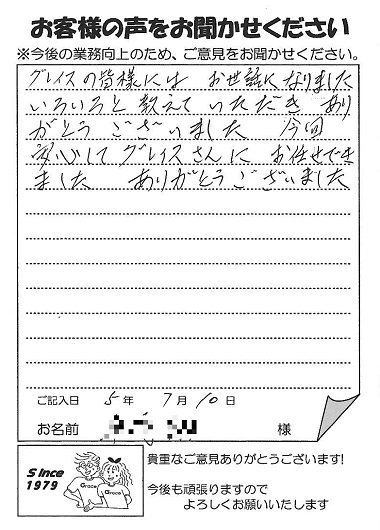 お客様の声をお聞かせください
※今後の業務向上のため、ご意見をお聞かせください。
グレイスの皆様には お世話になりました
いろいろと教えていただき あり
がとうございました 今回
安心して グレイスさんに お任せでき
ました ありがとうございました
ご記入日 5年 7月 10日
お名前 様
Since
1979
Grace
Grace
貴重なご意見ありがとうございます!
今後も頑張りますので
よろしくお願いいたします